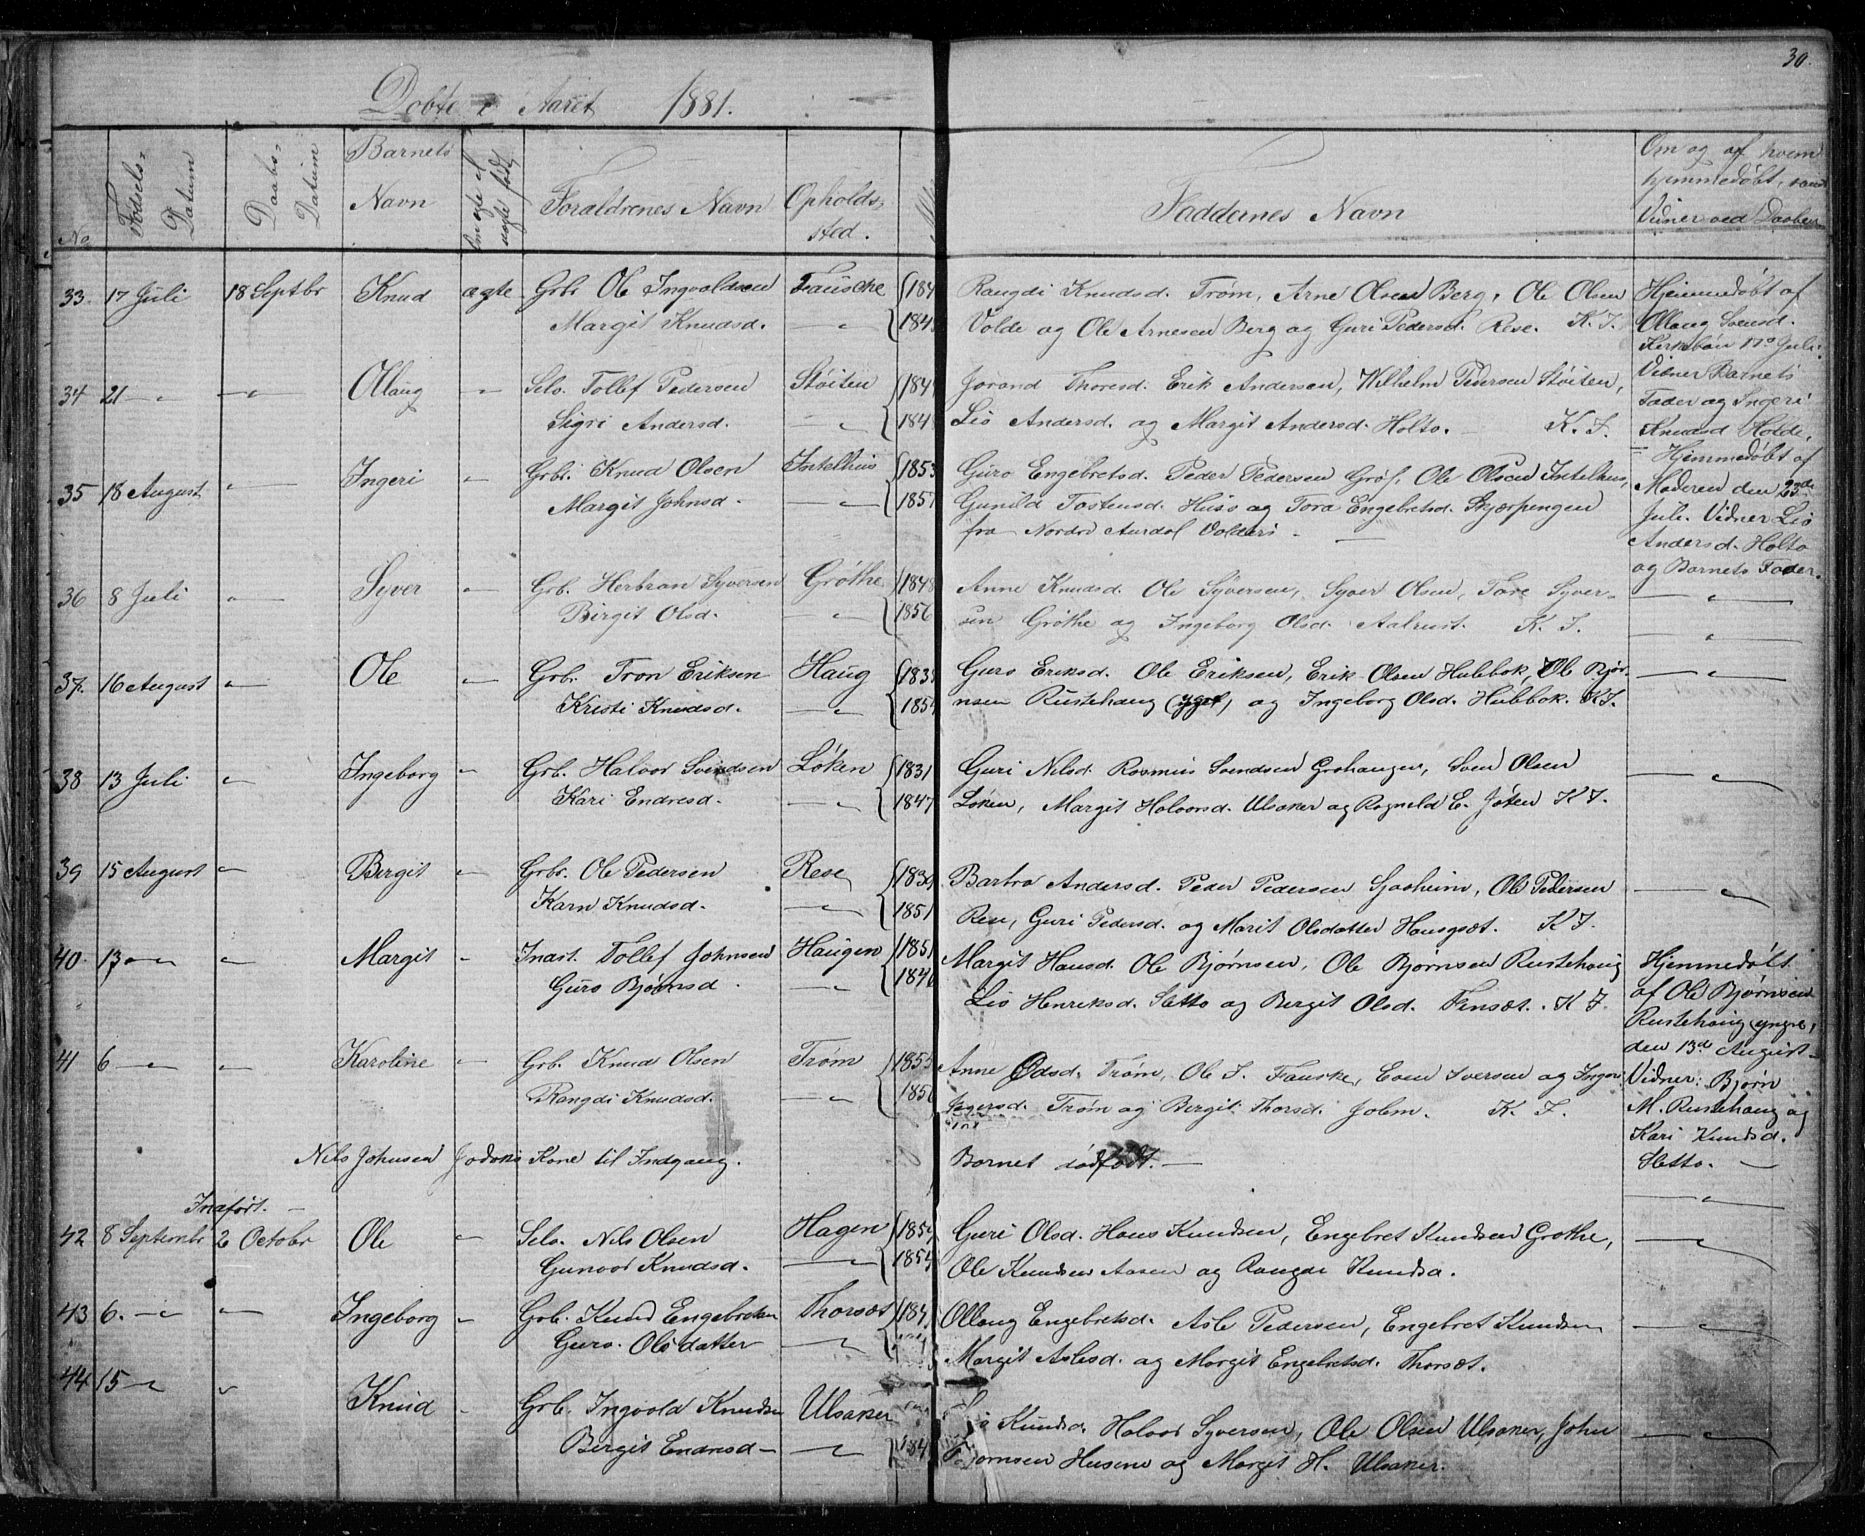 30.
Døbte i Aaret 1881.
No.
Fødsels-
Datum
Daabs-
Datum
Barnets
Navn
Om ægte el
uægte født
Forældrenes Navn
Opholds-
sted.
Faddernes Navn
Om og af hvem
hjemmedøbt, samt
Vidner ved Daaben
33. 17 Juli 18 Septbr Knud ægte Grbr. Ole Ingvoldsen Fauske 184
Margit Knudsd. — " — 184
Rangdi Knudsd. Trøm, Arne Olsen Berg, Ole Olsen
Volde og Ole Arnesen Berg og Guri Pedersd. Rese. K. I.
Hjemmedøbt af
Ollaug Svensd.
Kirkebøn 17de Juli.
Vidner Barnets
Fader og Ingeri
Knudsd Holde.
34 21 — " — — " — Ollaug " Selv. Tollef Pedersen Støiten 184
Sigri Andersd. — " — 184
Jørand Thoresd. Erik Andersen, Wilhelm Pedersen Støiten,
Liv Andersd. og Margit Andersd. Holto. — K. I.
Hjemmedøbt af
Moderen den 23de
Juli. Vidner Liv
Andersd. Holto
og Barnets Fader.
35 18 August — " — Ingeri " Grbr. Knud Olsen Intelhus 1853
Margit Johnsd. — " — 1857
Guro Engebretsd. Peder Pedersen Grøf, Ole Olsen Intelhus,
Gunild Tostensd. Huso og Tora Engebretsd. Skjærpengen
fra Nordre Aurdal Valders. —
36 8 Juli — " — Syver " Grb. Herbran Syversen Grøthe 1848
Birgit Olsd. — " — 1856
Anne Knudsd. Ole Syversen, Syver Olsen, Tore Syver-
sen Grøthe og Ingeborg Olsd. Aalrust. K. I.
— " —
— " —
37. 16 August " Ole " Grb. Tron Eriksen Haug 183
Kristi Knudsd. — " — 185
Guro Eriksd. Ole Eriksen, Erik Olsen Hubbok, Ole Bjør-
nsen Rustehaug (ygst) og Ingeborg Olsd. Hubbok. K I.
— " —
38 13 Juli " Ingeborg " Grb. Halvor Svendsen Løken 1831
Kari Endresd. — " — 1847
Guri Nilsd. Rasmus Svendsen Grohaugen, Sven Olsen
Løken, Margit Halvorsd. Ulsaker og Ragnild E. Jøten K I.
— " —
39 15 August " Birgit " Grbr. Ole Pedersen Rese 1839
Karn Knudsd. — " — 1851
Bartro Andersd. Peder Pedersen Sjaaheim, Ole Pedersen
Rese, Guri Pedersd. og Marit Olsdatter Haugsæt. K I.
— " —
40. 13 — " — " Margit " Inast. Tollef Johnsen Haugen 1851
Guro Bjørnsd. — " — 184
Margit Hansd. Ole Bjørnsen, Ole Bjørnsen Rustehaug
Liv Henriksd. Sletto og Bergit Olsd. Finsæt. K I.
Hjemmedøbt
af Ole Bjørnsen
Rustehaug (yngre)
den 13de August
Vidner: Bjørn
M. Rustehaug og
Kari Knudsd.
Sletto. —
41 6 — " — " Karoline " Grb. Knud Olsen Trøm 1855
Rangdi Knudsd. — " — 185
Anne Odsd. Trøm, Ole I. Fauske, Even Iversen og Inger
Trøm og Bergit Thorsd. Jolm. K. I.
Nils Johnsen Jodokis Kone til Indgang. Barnet dødfødt. —
— " —
Indført. —
42 8 Septembr 2 Octobr Ole " Selv. Nils Olsen Hagen 185
Gunvor Knudsd. — " — 1854
Guri Olsd. Hans Knudsen, Engebret Knudsen Grøthe,
Ole Knudsen Aasen og Rangdi Knudsd.
— " —
43 6. — " — " Ingeborg " Grb. Knud Engebretsen Thorsæt 184
Guro Olsdatter — " —
Ollaug Engebretsd. Asle Pedersen, Engebret Knudsen
Margit Aslesd. og Margit Engebretsd. Thorsæt.
— " —
44 15 — " — " Knud " Grb. Ingvold Knudsen Ulsaker
Bergit Endresd — " — 184
Knudsd. Halvor Syversen, Ole Olsen Ulsaker, John
Bjørnsen Husene og Margit H. Ulsaker.
— " —